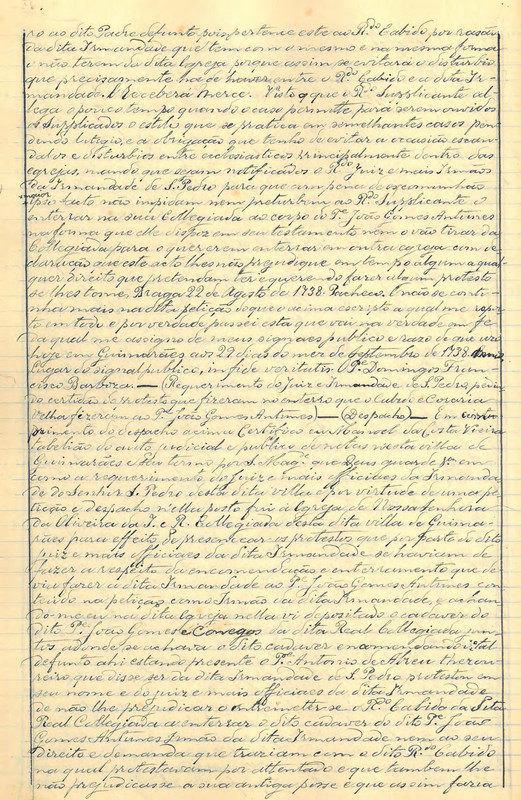 ro ao dito Padre defunto pois pertence este ao R.do Cabido, por rasão
da dita Irmandade que tem com o mesmo e na mesma forma
o não terem da dita Igreja porque assim se evitará o disturbio
que precisamente ha de haver entre o R.do Cabido e a dita Ir-
mandade. E Receberá Merce. Visto q que o R.do Supplicante al-
lega o pouco tempo quando o caso permitte para serem ouvidos
os Supplicados o estilo que se pratica em semelhantes casos pen-
dendo litigio, e a obrigação que tenho de evitar a occasião escan-
dalos e disturbios entre ecclesiasticos principalmente dentro das
egrejas, mando que sejam notificados o R.do Juiz e mais Irmãos
da Irmandade de S. Pedro para que com pena de excommunhão
maior
ipso facto não impidam nem preturbem ao R.do Supplicante o
enterrar na sua Collegiada ao corpo do P.e João Gomes Antunes
na forma que elle dispoz em seu testamento nem o vão tirar da
Collegiada para o quererem enterrar em outra egreja com de-
claração que este acto lhes não prejudique em tempo algum a qual-
quer direito que pretendam ter e querendo fazer algum protesto
se lhes tome, Braga 22 de Agosto de 1738. Pacheco. E não se conti-
nha mais na dita petição do que o acima escripto a qual me repor-
to em todo e por verdade passei esta que vou na verdade em fé
da qual me assigno de meus signaes publico e razo de que uso
hoje em Guimarães aos 22 dias do mez de Septembro de 1738 annos
Lugar do signal publico, in fide veritatis O P.e Domingos Fran-
cisco Barboza. — (Requerimento do Juiz e Irmandade de S. Pedro, pedin-
do certidão do protesto que fizeram no enterro que o Cabido e Coraria
velha fizeram ao P.e João Gomes Antunes) — (Despacho) — Em cum-
primento do despacho acima Certifico eu Manoel da Costa Vieira
tabelião do auto judicial e publico de notas nesta villa de
Guimarães e seu termo por S. Mag.e que Deus guarde &.a em
como a requerimento do Juiz e mais officiaes da Irmanda-
de do Senhor S. Pedro desta dita villa e por virtude de uma pe-
tição e despacho nella posto fui á Igreja de Nossa Senhora
da Oliveira da I. e R. Collegiada desta dita villa de Guima-
rães para effeito de presencear os protestos que por parte do dito
Juiz e mais officiaes da dita Irmandade se haviam de
fazer a respeito da encomendação e enterramento que de-
via fazer a dita Irmandade ao P.e João Gomes Antunes con-
teúdo na petição como Irmão da dita Irmandade, e achan-
do-me eu na dita Igreja nella vi depositado o cadaver do
dito P.e João Gomes e Conegos da dita Real Collegiada jun-
tos adonde se achava o dito cadaver encomendando o tal
defunto ahi estando presente o P.e Antonio de Abreu thezou-
reiro que disse ser da dita Irmandade de S. Pedro protestou em
seu nome e do juiz e mais officiaes da dita Irmandade
de não lhe prejudicar o intrometter-se o R.do Cabido da dita
Real Collegiada a enterrar o dito cadaver do dito P.e João
Gomes Antunes Irmão da dita Irmandade nem ao seu
direito e demanda que traziam com o dito R.do Cabido
na qual protestavam por attentado e que tambem lhe
não prejudicasse a sua antiga posse e que assim faria